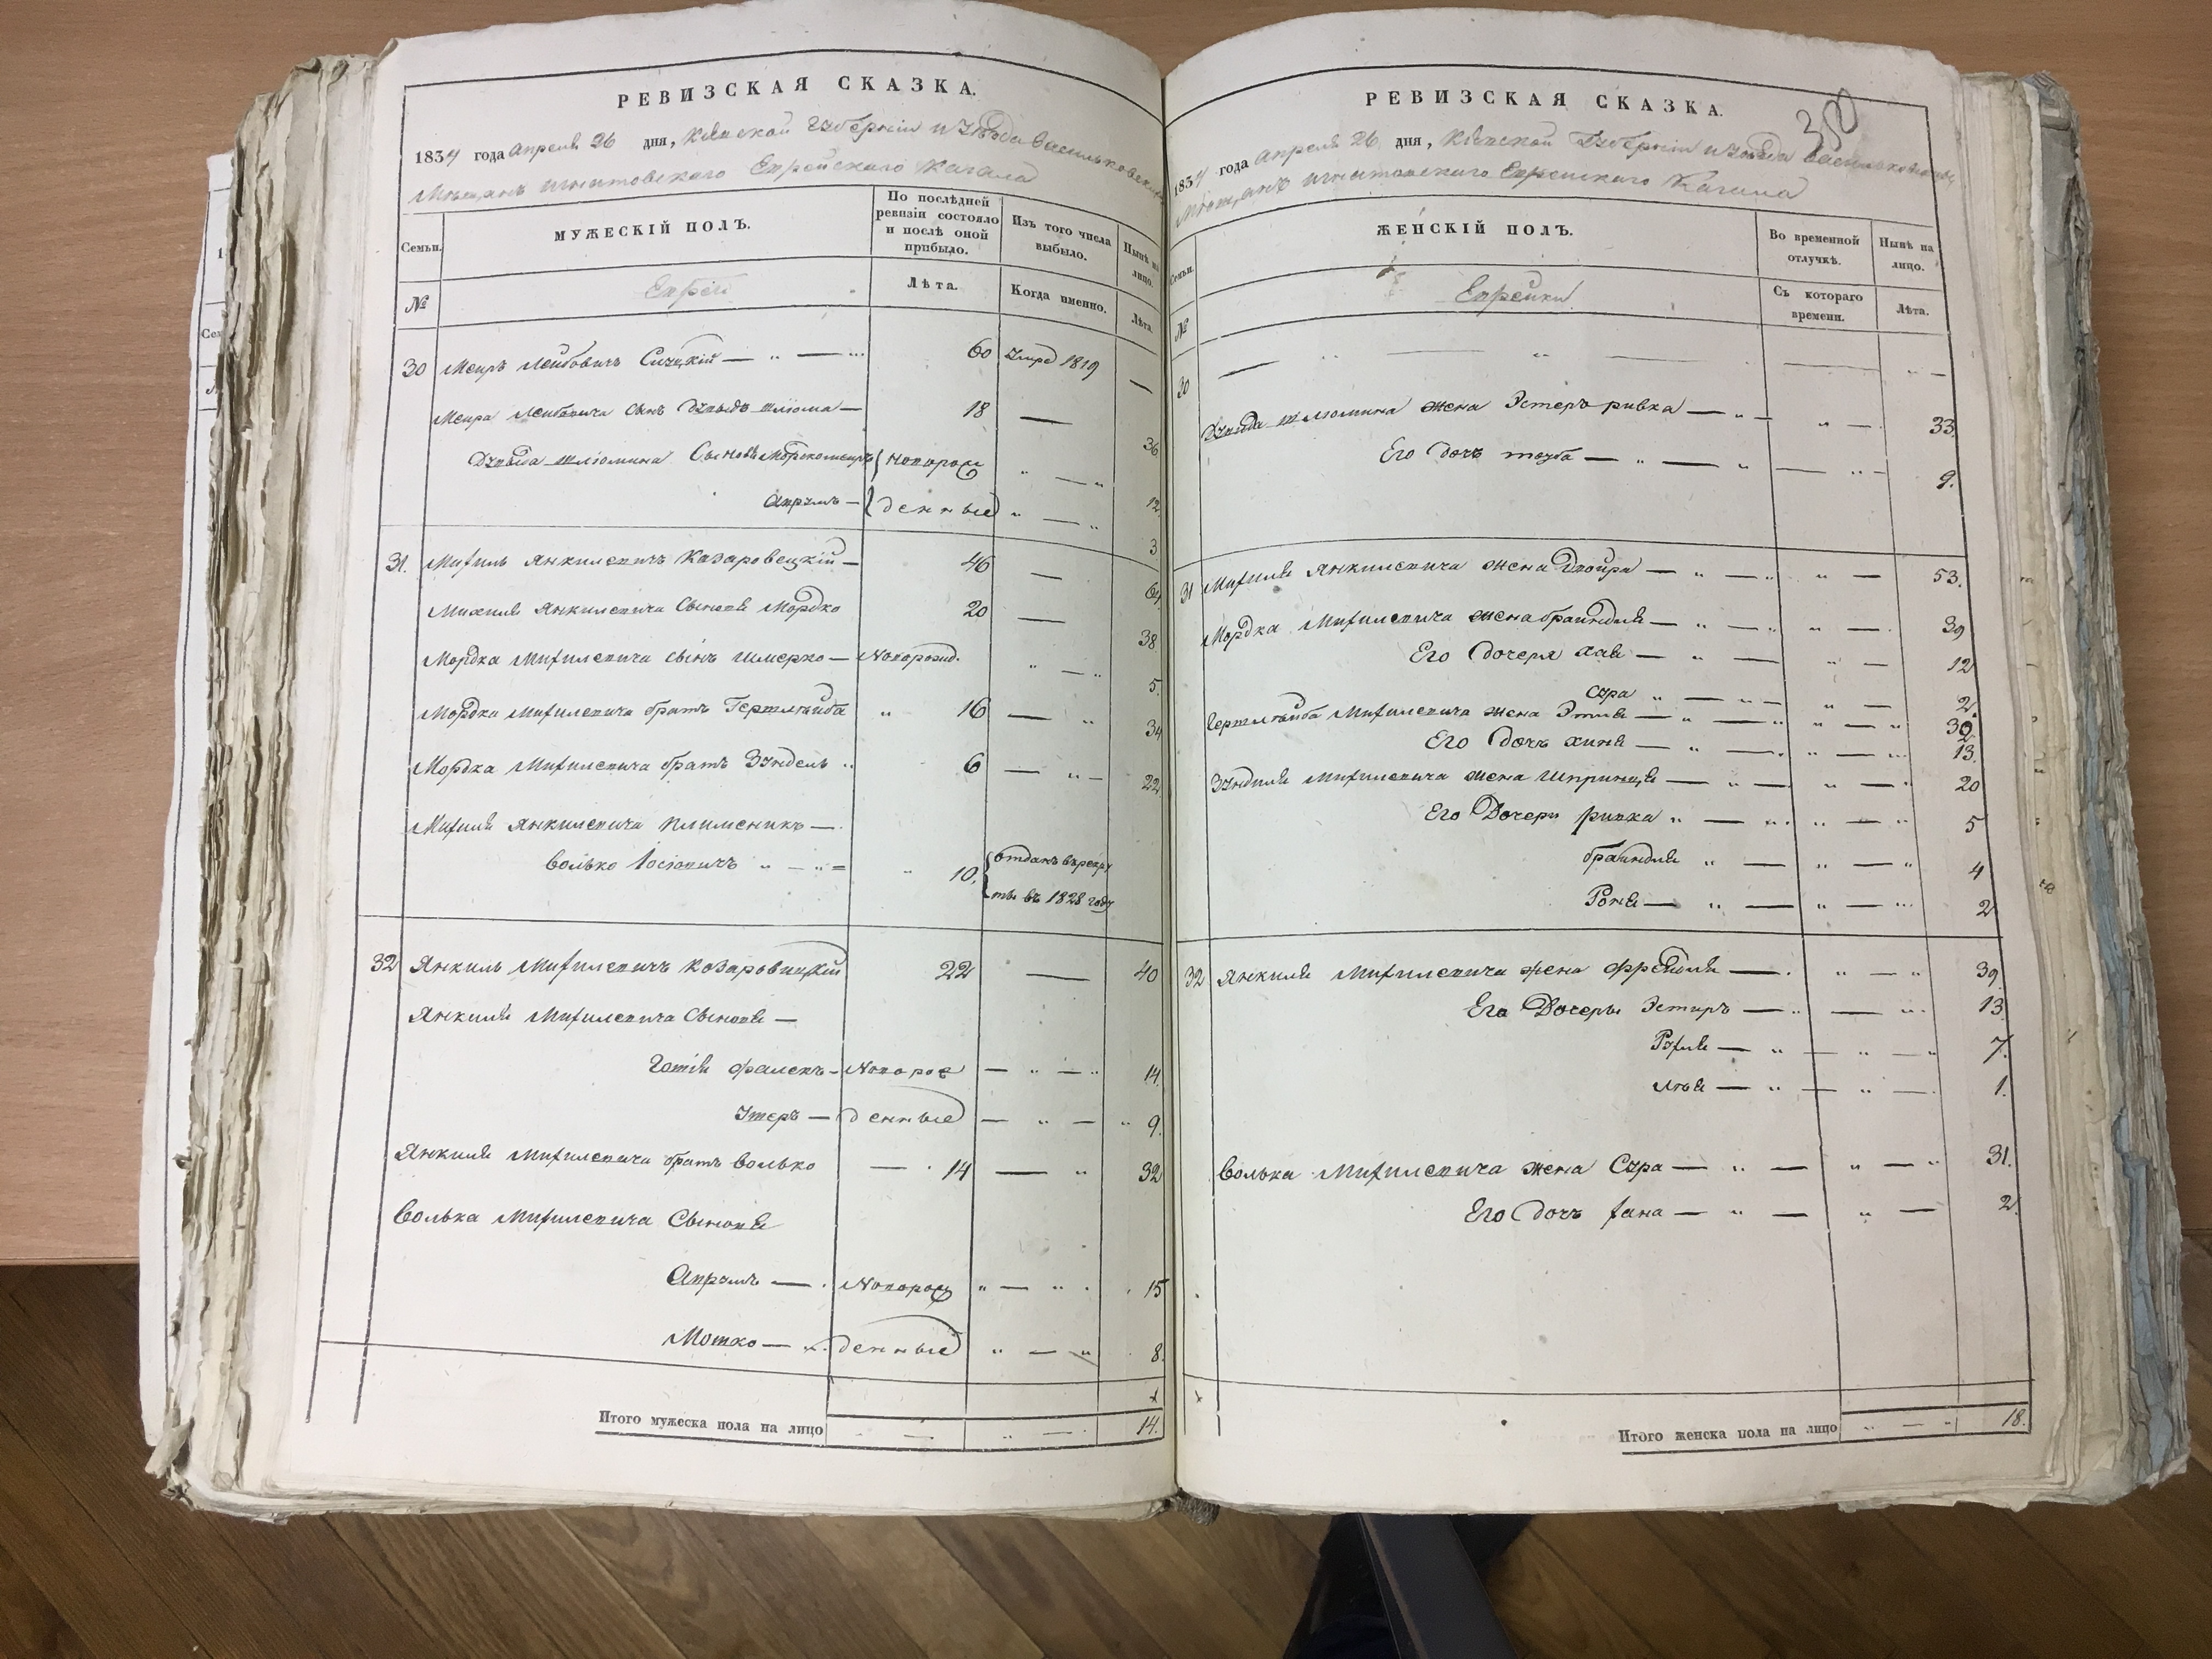 РЕВИЗСКАЯ СКАЗКА.
1834 года Апреля 26 дня, Кіевской Губерніи и Уезда Васильковских
Мещанъ Игнатовского Еврейского Кагала
Семьи.
МУЖЕСКІЙ ПОЛЪ.
По послѣдней ревизіи состояло и послѣ оной прибыло.
Изъ того числа выбыло.
Нынѣ на лицо.
№
Евреи
Лѣта.
Когда именно.
Лѣта.
30 Меиръ Лейбовичъ Сицкій — 60 Умре 1819 —
Меира Лейбовича сынъ Дувыдъ Шліома — 18 — 36
Дувыда Шліомина Сыновья Мордкомеиръ { Новорож " — " 12.
Аврумъ — { денные " — " 3
31. Михиль Янкилевичъ Казаровецкій — 46 — 64.
Михиля Янкилевича Сыновя Мордко 20 — 38
Мордка Михилевича сынъ Шмерко — Новорожд. " — " 5.
Мордка Михилевича братъ Гершлейба " 16 — " 34
Мордка Михилевича братъ Зундель " 6 — " — 22.
Михиля Янкилевича племеникъ —
Волько Іосіовичъ " — " = " 10. { отданъ въ рекру
{ ты въ 1828 году
32 Янкиль Михилевичъ Козаровицкій 22 — 40
Янкиля Михилевича Сыновя —
Гоття Фалекъ — Новорож — " — " 14.
Утеръ — денные — " — " 9.
Янкиля Михилевича братъ Волько — 14 — " 32
Волька Михилевича Сыновя
Аврумъ — . Новорож " — " . 15
Мотко — денные " — " 8.
Итого мужеска пола на лицо — " — 14.
РЕВИЗСКАЯ СКАЗКА.
1834 года Апреля 26 дня, Кіевской Губерніи и Уезда Васильковских
Мещанъ Игнатовского Еврейского Кагала
Семьи.
ЖЕНСКІЙ ПОЛЪ.
Во временной отлучкѣ.
Нынѣ на лицо.
№
Еврейки
Съ котораго времени.
Лѣта.
30 — " " — — " —
Дувыда Шліомина жена Эстеръ ривка — " — " — . 33.
Его дочь тауба — " — " — " — 9.
31 Михиля Янкилевича жена Двойра — " — " " — 53.
Мордка Михилевича жена браиндля — " — " " — . 39
Его дочеря хая — " — " — 12
Сура " — " — " — 2.
Гершлейба Михилевича жена Этля — " — " " — " 30
Его дочь хиня — " — " " — " 13.
Зунделя Михилевича жена Шпринця — " — " " — " 20
Его Дочери ривка " — " " — " 5
браиндля " — " — " 4
Роня — " — " — " 2
32 Янкиля Михилевича жена Фрейдля — . " — " 39
Его Дочеры Эстиръ — " — " 13.
Рухля — " — " — " 7.
Лея — " — " — " 1.
Волька Михилевича жена Сура — " — " — " 31.
Его дочь хана — " — " — 2.
Итого женска пола на лицо " — " 18.